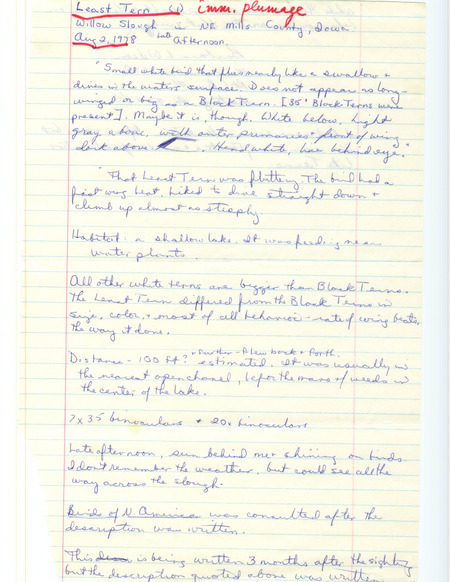 Least Tern (1) imm. plumage
Willow Slough in NE Mills County, Iowa
Aug 2, 1978 late Afternoon
"Small white bird that flies nearly like a swallow +
dives in the waters surface. Does not appear as long-
winged or big as a Black Tern. [35 Black Terns were
present]. Maybe it is, though. White below, light
gray above, with outer primaries + front of wing
dark above. Head white, line behind eye."
"That Least Tern was flitting. The bird had a
fast wing beat, liked to dive straight down +
climb up almost as steeply.
Habitat: a shallow lake. It was feeding near
water plants.
All other white terns are bigger than Black Terns.
The Least Tern differed from the Black Terns in
size, color, + most of all behavior - rate of wing beats,
the way it dove.
+ further - flew back + forth.
Distance - 100 ft? estimated. It was usually in
the nearest open channel, before the mass of weeds in
the center of the lake.
7x35 binoculars + 20x binoculars
Late afternoon, sun behind me + shining on birds.
I don't remember the weather, but could see all the
way across the slough.
Birds of N. America was consulted after the
description was written.
This is being written 3 months after the sighting
but the description quoted above was written